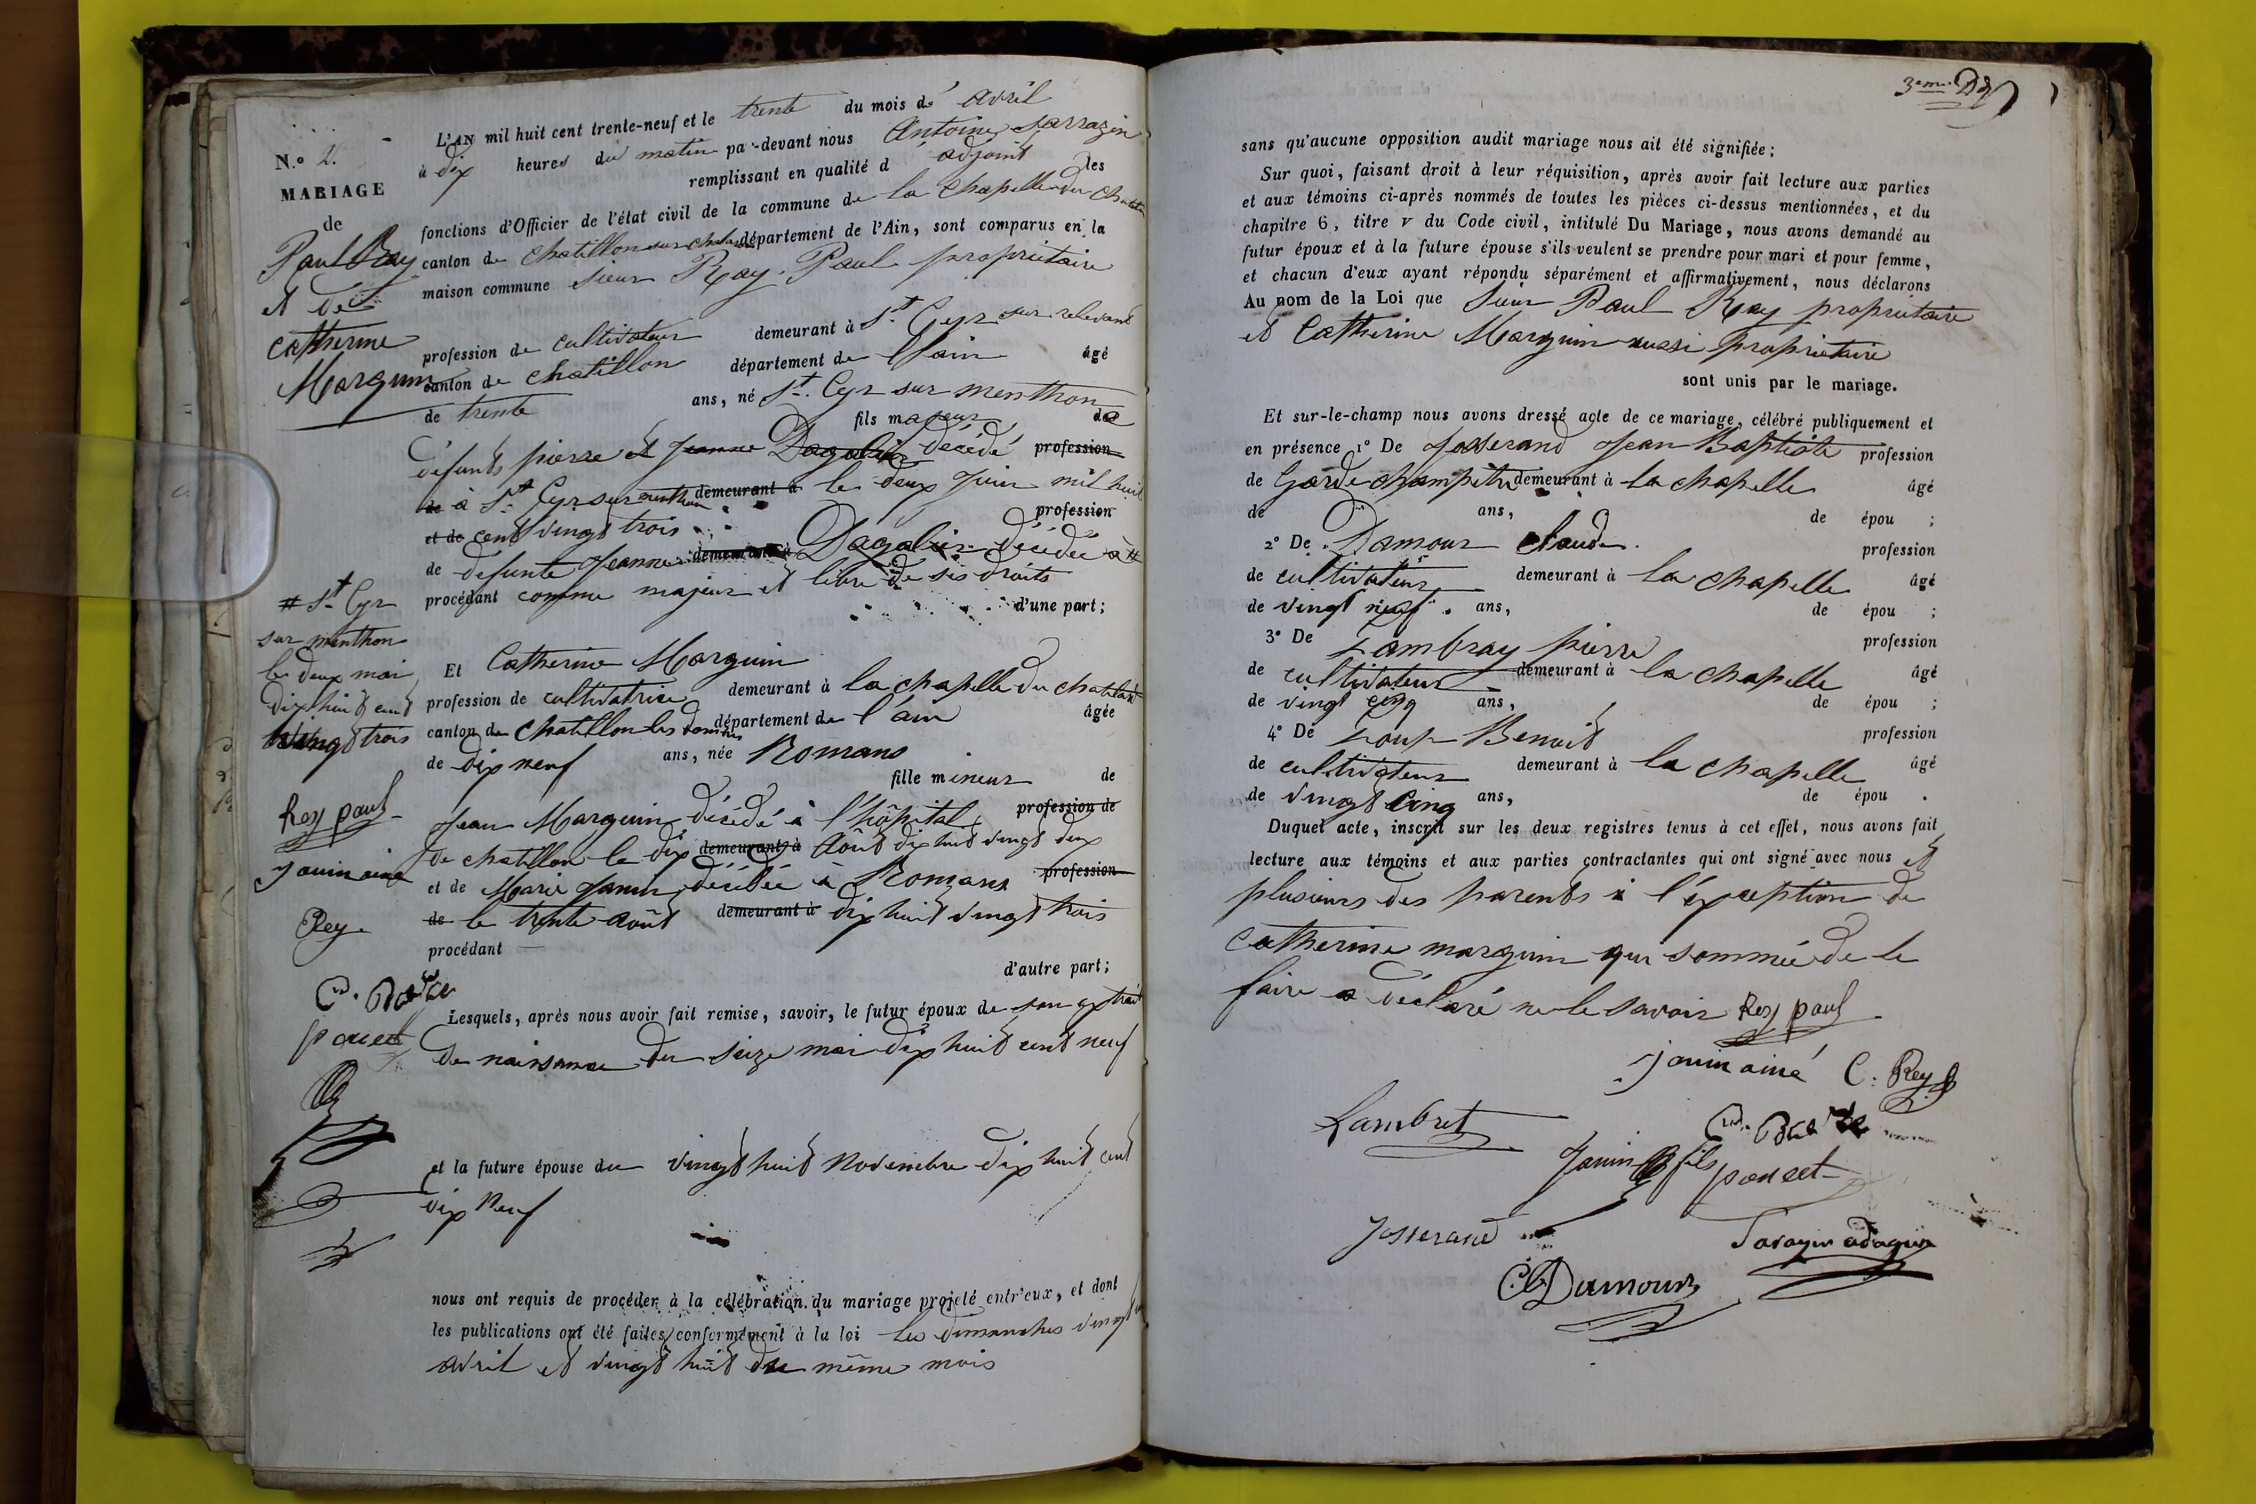 N.° 2.
MARIAGE
de
Paul Ray
et de
Catherine
Marguin
L'AN mil huit cent trente-neuf et le trente du mois d' avril
à dix heures du matin par-devant nous Antoine Sarrazin
remplissant en qualité d'adjoint les
fonctions d'Officier de l'état civil de la commune de la Chapelle du Chatelard
canton de Chatillon sur Chalaronne département de l'Ain, sont comparus en la
maison commune sieur Ray Paul propriétaire
profession de cultivateur demeurant à St. Cyr sur relevant
canton de Chatillon département de l'ain âgé
de trente ans, né St. Cyr sur menthon
fils majeur de
défunts pierre et Jeanne Dagalier décédé profession
de à St. Cyr sur menthon demeurant à le deux Juin mil huit
et de cent vingt trois profession
de defunte Jeanne demeurant à Dagalier décédée à #
procédant comme majeur et libre de ses droits
d'une part;
# St. Cyr
sur menthon
le deux mai
dix huit cent
vingt trois
Rey paul
Jouin ainé
Rey
poncet
Et Catherine Marguin
profession de cultivatrice demeurant à la chapelle du chatelard
canton de Chatillon les dombes département de l'ain âgée
de dix neuf ans, née Romans
fille mineur de
Jean Marguin décédé à l'hôpital profession de
de chatillon le dix demeurant à Août dix huit vingt deux
et de Marie Janin décédée à Romans profession
de le trente août demeurant à dix huit vingt trois
procédant
d'autre part;
Lesquels, après nous avoir fait remise, savoir, le futur époux de son extrait
de naissance du seize mai dix huit cent neuf
et la future épouse du vingt huit Novembre dix huit cent
dix Neuf
nous ont requis de procéder à la célébration du mariage projeté entr'eux, et dont
les publications ont été faites conformément à la loi les dimanches vingt
avril et vingt huit du même mois
3eme
sans qu'aucune opposition audit mariage nous ait été signifiée;
Sur quoi, faisant droit à leur réquisition, après avoir fait lecture aux parties
et aux témoins ci-après nommés de toutes les pièces ci-dessus mentionnées, et du
chapitre 6, titre v du Code civil, intitulé Du Mariage, nous avons demandé au
futur époux et à la future épouse s'ils veulent se prendre pour mari et pour femme,
et chacun d'eux ayant répondu séparément et affirmativement, nous déclarons
Au nom de la Loi que Sieur Paul Ray propriétaire
et Catherine Marguin aussi propriétaire
sont unis par le mariage.
Et sur-le-champ nous avons dressé acte de ce mariage, célébré publiquement et
en présence 1° De Josserand Jean Baptiste profession
de Garde champêtre demeurant à la chapelle âgé
de ans, de épou ;
2° De Damour Claude profession
de cultivateur demeurant à la chapelle âgé
de vingt neuf ans, de épou ;
3° De Lambray pierre profession
de cultivateur demeurant à la chapelle âgé
de vingt cinq ans, de épou ;
4° De Loup Benoit profession
de cultivateur demeurant à la chapelle âgé
de vingt cinq ans, de épou .
Duquel acte, inscrit sur les deux registres tenus à cet effet, nous avons fait
lecture aux témoins et aux parties contractantes qui ont signé avec nous et
plusieurs des parents à l'éxception de
Catherine marguin qui sommée de le
faire a déclaré ne le savoir Rey paul
Jouin ainé C. Rey
Lambret
Janin fils poncet
Josserand
Sarazin adagoin
Cl Damour